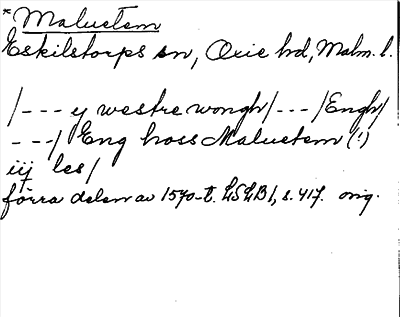 *Maluetem
Eskilstorps sn, Oxie hd, Malm. l.
/--- y westre wongh/---/Engh/
---/ Eng hoss Maluetem (!)
iij les/
förra delen av 1570-t. LSLB1, s. 417. orig.